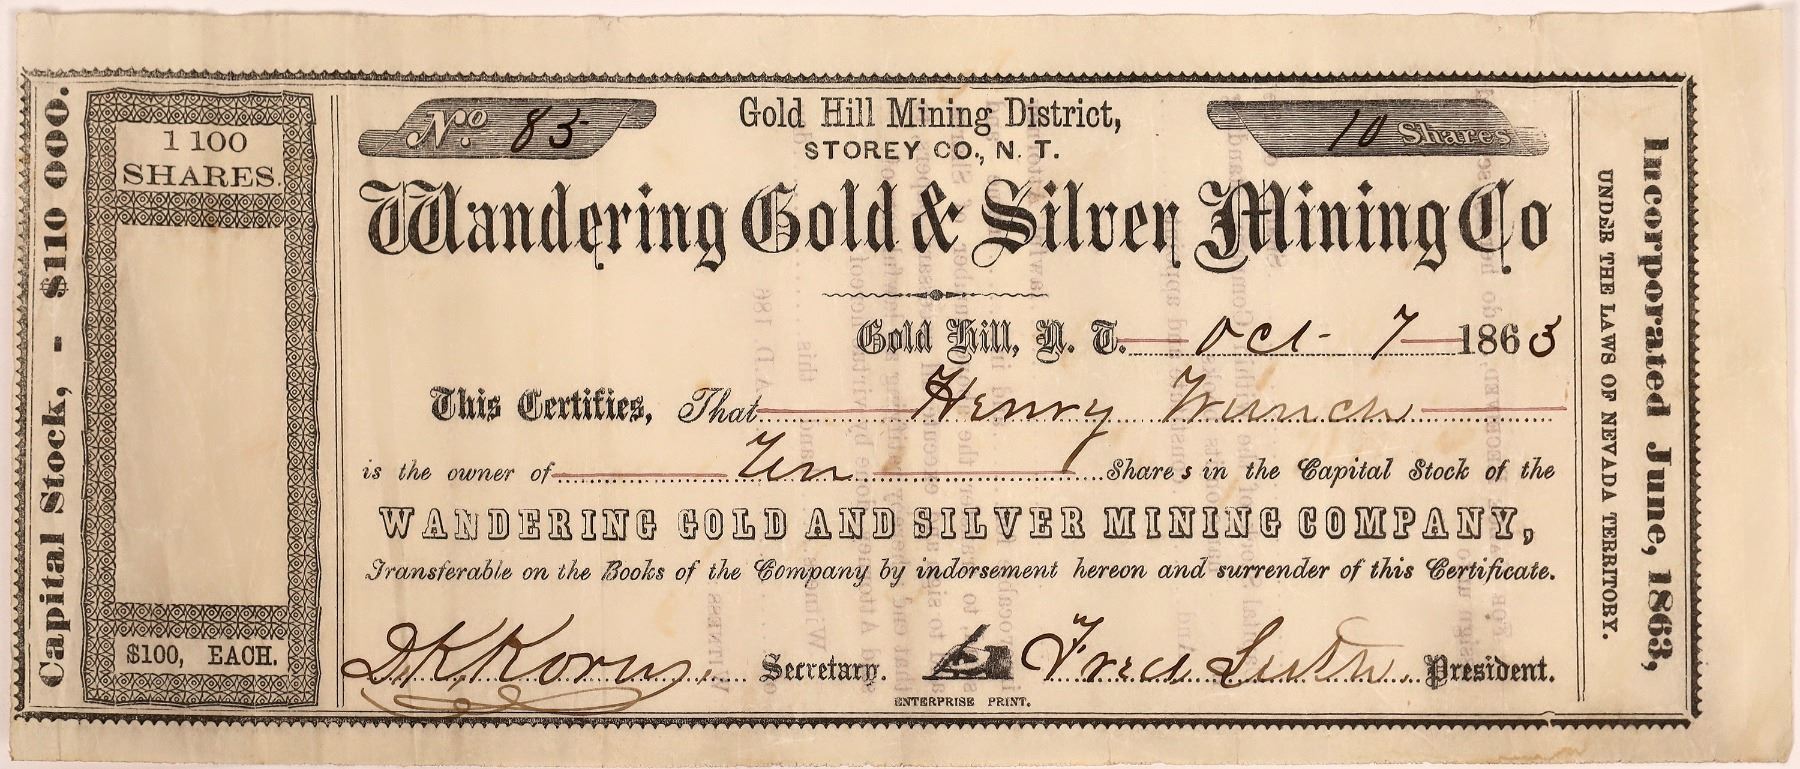 Capital Stock, - $110 000.
1100
SHARES.
$100, EACH.
No. 83
Gold Hill Mining District,
STOREY CO., N. T.
10 Shares
Wandering Gold & Silver Mining Co
Gold Hill, N. T. Oct - 7 1863
This Certifies, That Henry Wunch
is the owner of Ten Shares in the Capital Stock of the
WANDERING GOLD AND SILVER MINING COMPANY,
Transferable on the Books of the Company by indorsement hereon and surrender of this Certificate.
D. K. Korns. Secretary. Fred Luth President.
ENTERPRISE PRINT.
UNDER THE LAWS OF NEVADA TERRITORY.
Incorporated June, 1863,